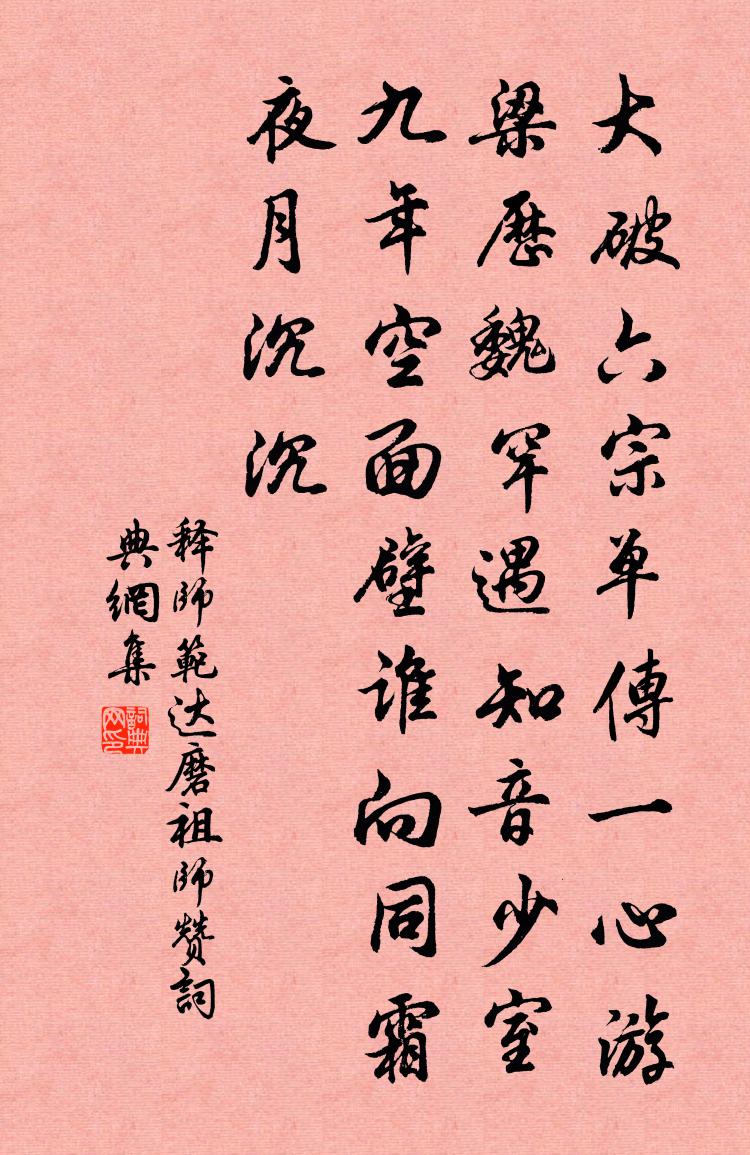 大破六宗单傳一心游
梁歷魏罕遇知音少室
九年空面壁谁向同霜
夜月沉沉
释師範达磨祖師赞詞
典網集
詞典網印